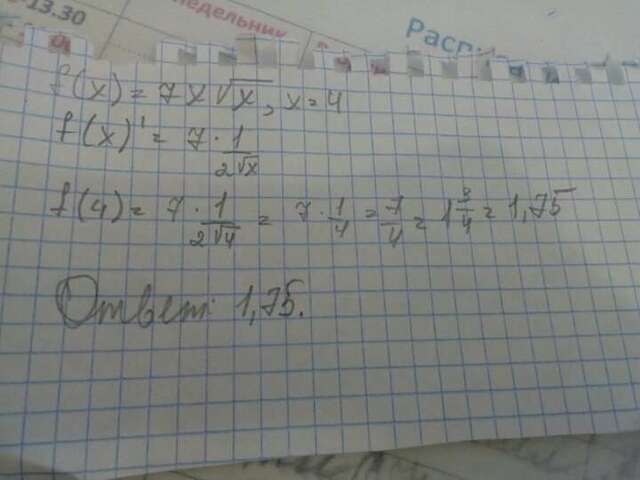 13.30
недельник
f(x) = 7x√x, x = 4
f(x)' = 7 · 1/(2√x)
f(4) = 7 · 1/(2√4) = 7 · 1/4 = 7/4 = 1 3/4 = 1,75
Ответ: 1,75.